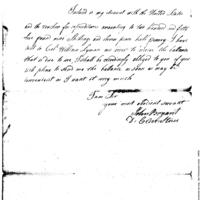 Inclosed is my account with the United States
and the voucher for expenditures amounting to two hundred and fifty
four pound nine shilling and eleven pence half penny I have
sent to Col. William Lyman an order to receive the balance
that is due to me, I shall be exceedingly obliged to you if you
will please to send me the balance as soon as may be
convenient as I want it very much
I am Sir
your most obedient servant
John Bryant